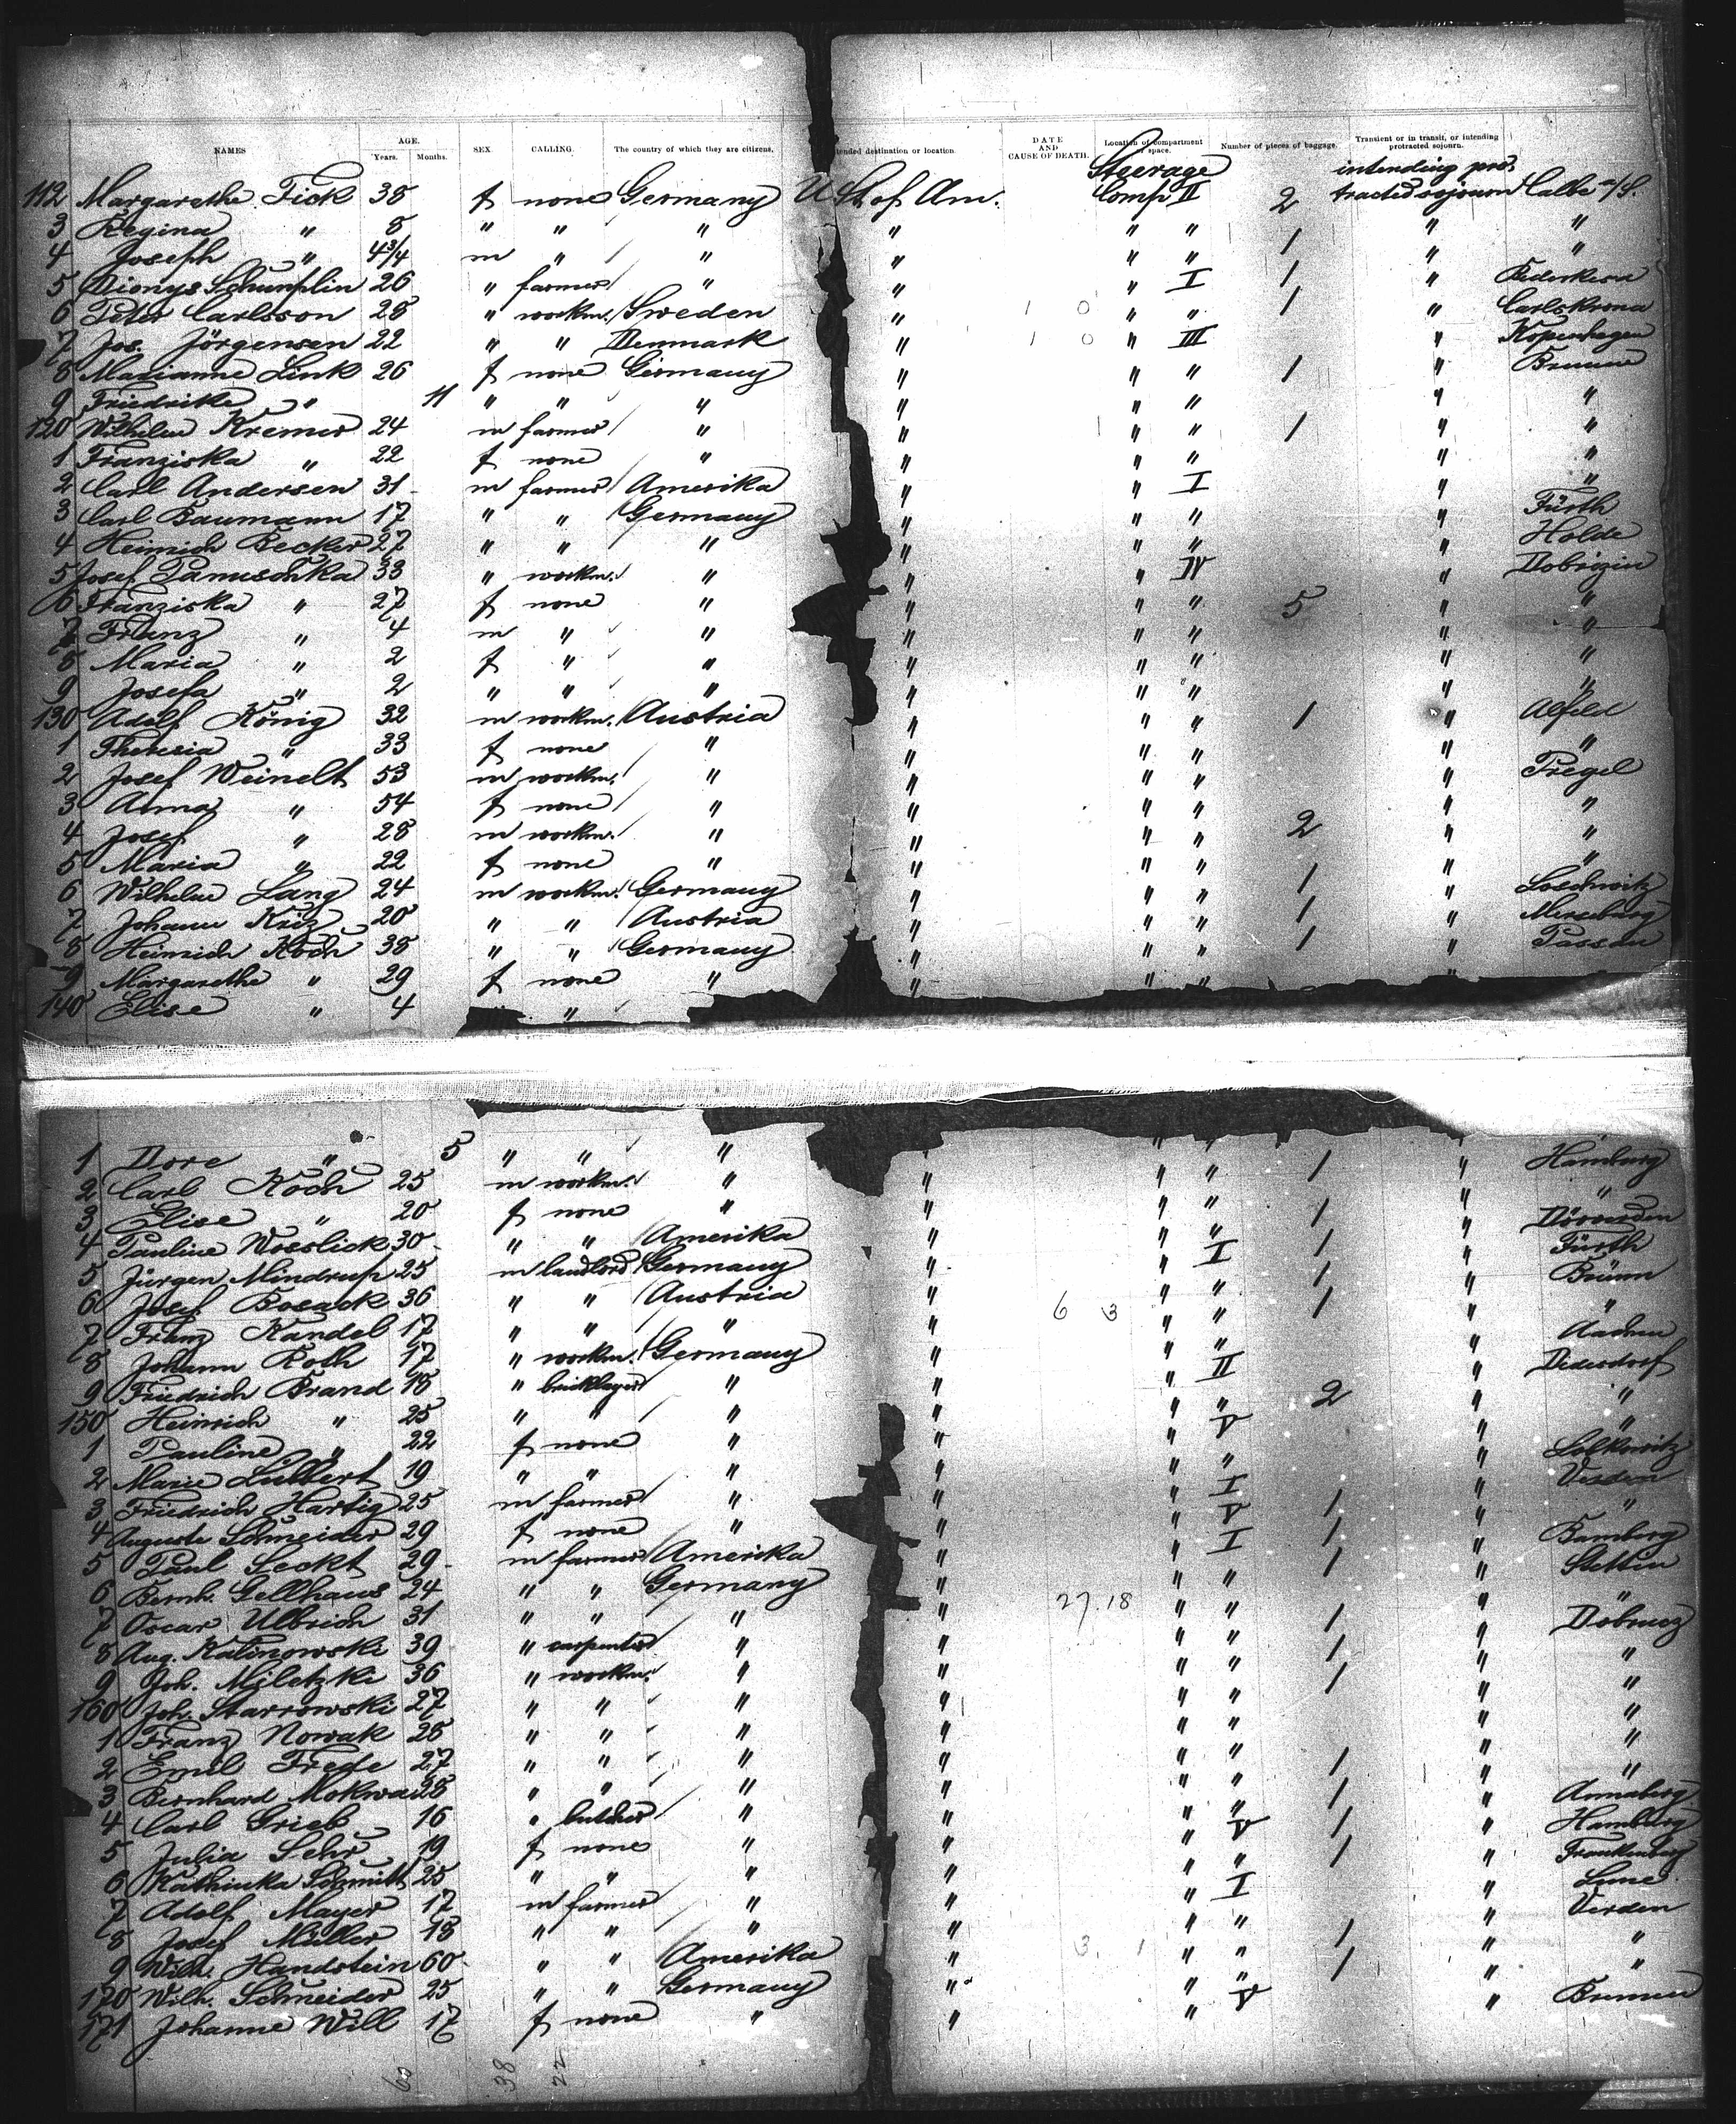 NAMES AGE. Years. Months. SEX. CALLING. The country of which they are citizens. Intended destination or location. DATE AND CAUSE OF DEATH. Location of compartment or space. Number of pieces of baggage. Transient or in transit, or intending protracted sojourn.
Steerage intending pro
112 Margarethe Fick 38 f none Germany U St. of Am. Comp II 2 tracted sojourn Calbe a/S.
3 Regina " 8 " " " " " " 1 " "
4 Joseph " 4 3/4 m " " " " " 1 " "
5 Dionys 26 " farmer " " " I 1 "
6 Peter Carlsson 28 " workm. Sweden " 1 0 " " 1 " Carlskrona
7 Jos. Jörgensen 22 " " Denmark " 1 0 " III " Kopenhagen
8 Marianne Link 26 f none Germany " " " 1 "
9 Friedrike " 11 " " " " " " " "
120 Wilhelm Kremer 24 m farmer " " " " 1 " "
1 Franziska " 22 f none " " " " " "
2 Carl Andersen 31 m farmer Amerika " " I " "
3 Carl Baumann 17 " " Germany " " " " Fürth
4 Heinrich Becker 27 " " " " " " " Holde
5 Josef 33 " workm. " " " IV "
6 Franziska " 27 f none " " " " 5 " "
7 Franz " 4 m " " " " " " "
8 Maria " 2 f " " " " " " "
9 Josefa " 2 " " " " " " " "
130 Adolf König 32 m workm. Austria " " " 1 " Alfeld
1 Theresia " 33 f none " " " " " "
2 Josef Weinelt 53 m workm. " " " " " Pregel
3 Anna " 54 f none " " " " " "
4 Josef " 28 m workm. " " " " 2 " "
5 Maria " 22 f none " " " " " "
6 Wilhelm Lang 24 m workm. Germany " " " 1 " Loschwitz
7 Johann Kriz 20 " " Austria " " " 1 " Merseburg
8 Heinrich Koch 38 " " Germany " " " 1 " Passau
9 Margarethe " 29 f none " " " " "
140 Elise " 4 "
1 Dore " 5 " " " " " " 1 " Hamburg
2 Carl Koch 25 m workm. " " " " " "
3 Elise " 20 f none " " " " 1 "
4 Pauline Wosslick 30 " " Amerika " " " 1 " Fürth
5 Jürgen Mindrup 25 m landlord Germany " " I 1 " Brünn
6 Josef Bosack 36 " " Austria " 6 3 " " 1 " "
7 Franz Kandel 17 " " " " " " " Aachen
8 Johann Roth 17 " workm. Germany " " II " Dedesdorf
9 Friedrich Brand 18 " bricklayer " " " " 2 " "
150 Heinrich " 25 " " " " " V " "
1 Pauline " 22 f none " " " " " Lobkowitz
2 Marie Lübbert 19 " " " " " I " Verden
3 Friedrich Hartig 25 m farmer " " " V 1 " "
4 Auguste Schneider 29 f none " " " I 1 " Bamberg
5 Paul Seckt 29 m farmer Amerika " " " 1 " Stettin
6 Bernh. Gellhaus 24 " " Germany " 27.18 " " " "
7 Oscar Ulbrich 31 " " " " " " 1 "
8 Aug. Kalinowski 39 " carpenter " " " " 1 " "
9 Joh. Miletzki 36 " workm. " " " " 1 " "
160 Joh. Starrowski 27 " " " " " " " "
1 Franz Nowak 28 " " " " " " " "
2 Emil Frese 27 " " " " " " 1 " "
3 Bernhard Mokwa 28 " " " " " " 1 " Annaberg
4 Carl Grieb 16 " butcher " " " V 1 " Hamburg
5 Julia Sehr 19 f none " " " " 1 " Frankenberg
6 Kathinka Schmitt 25 " " " " " I " Lune
7 Adolf Mayer 17 m farmer " " " " " Verden
8 Josef Müller 18 " " " " " " 1 " "
9 Wilh. Handstein 60 " " Amerika " 3. 1 " " 1 " "
170 Wilh. Schneider 25 " " Germany " " V " Bremen
171 Johanne Will 17 f none " " "
60 38 22